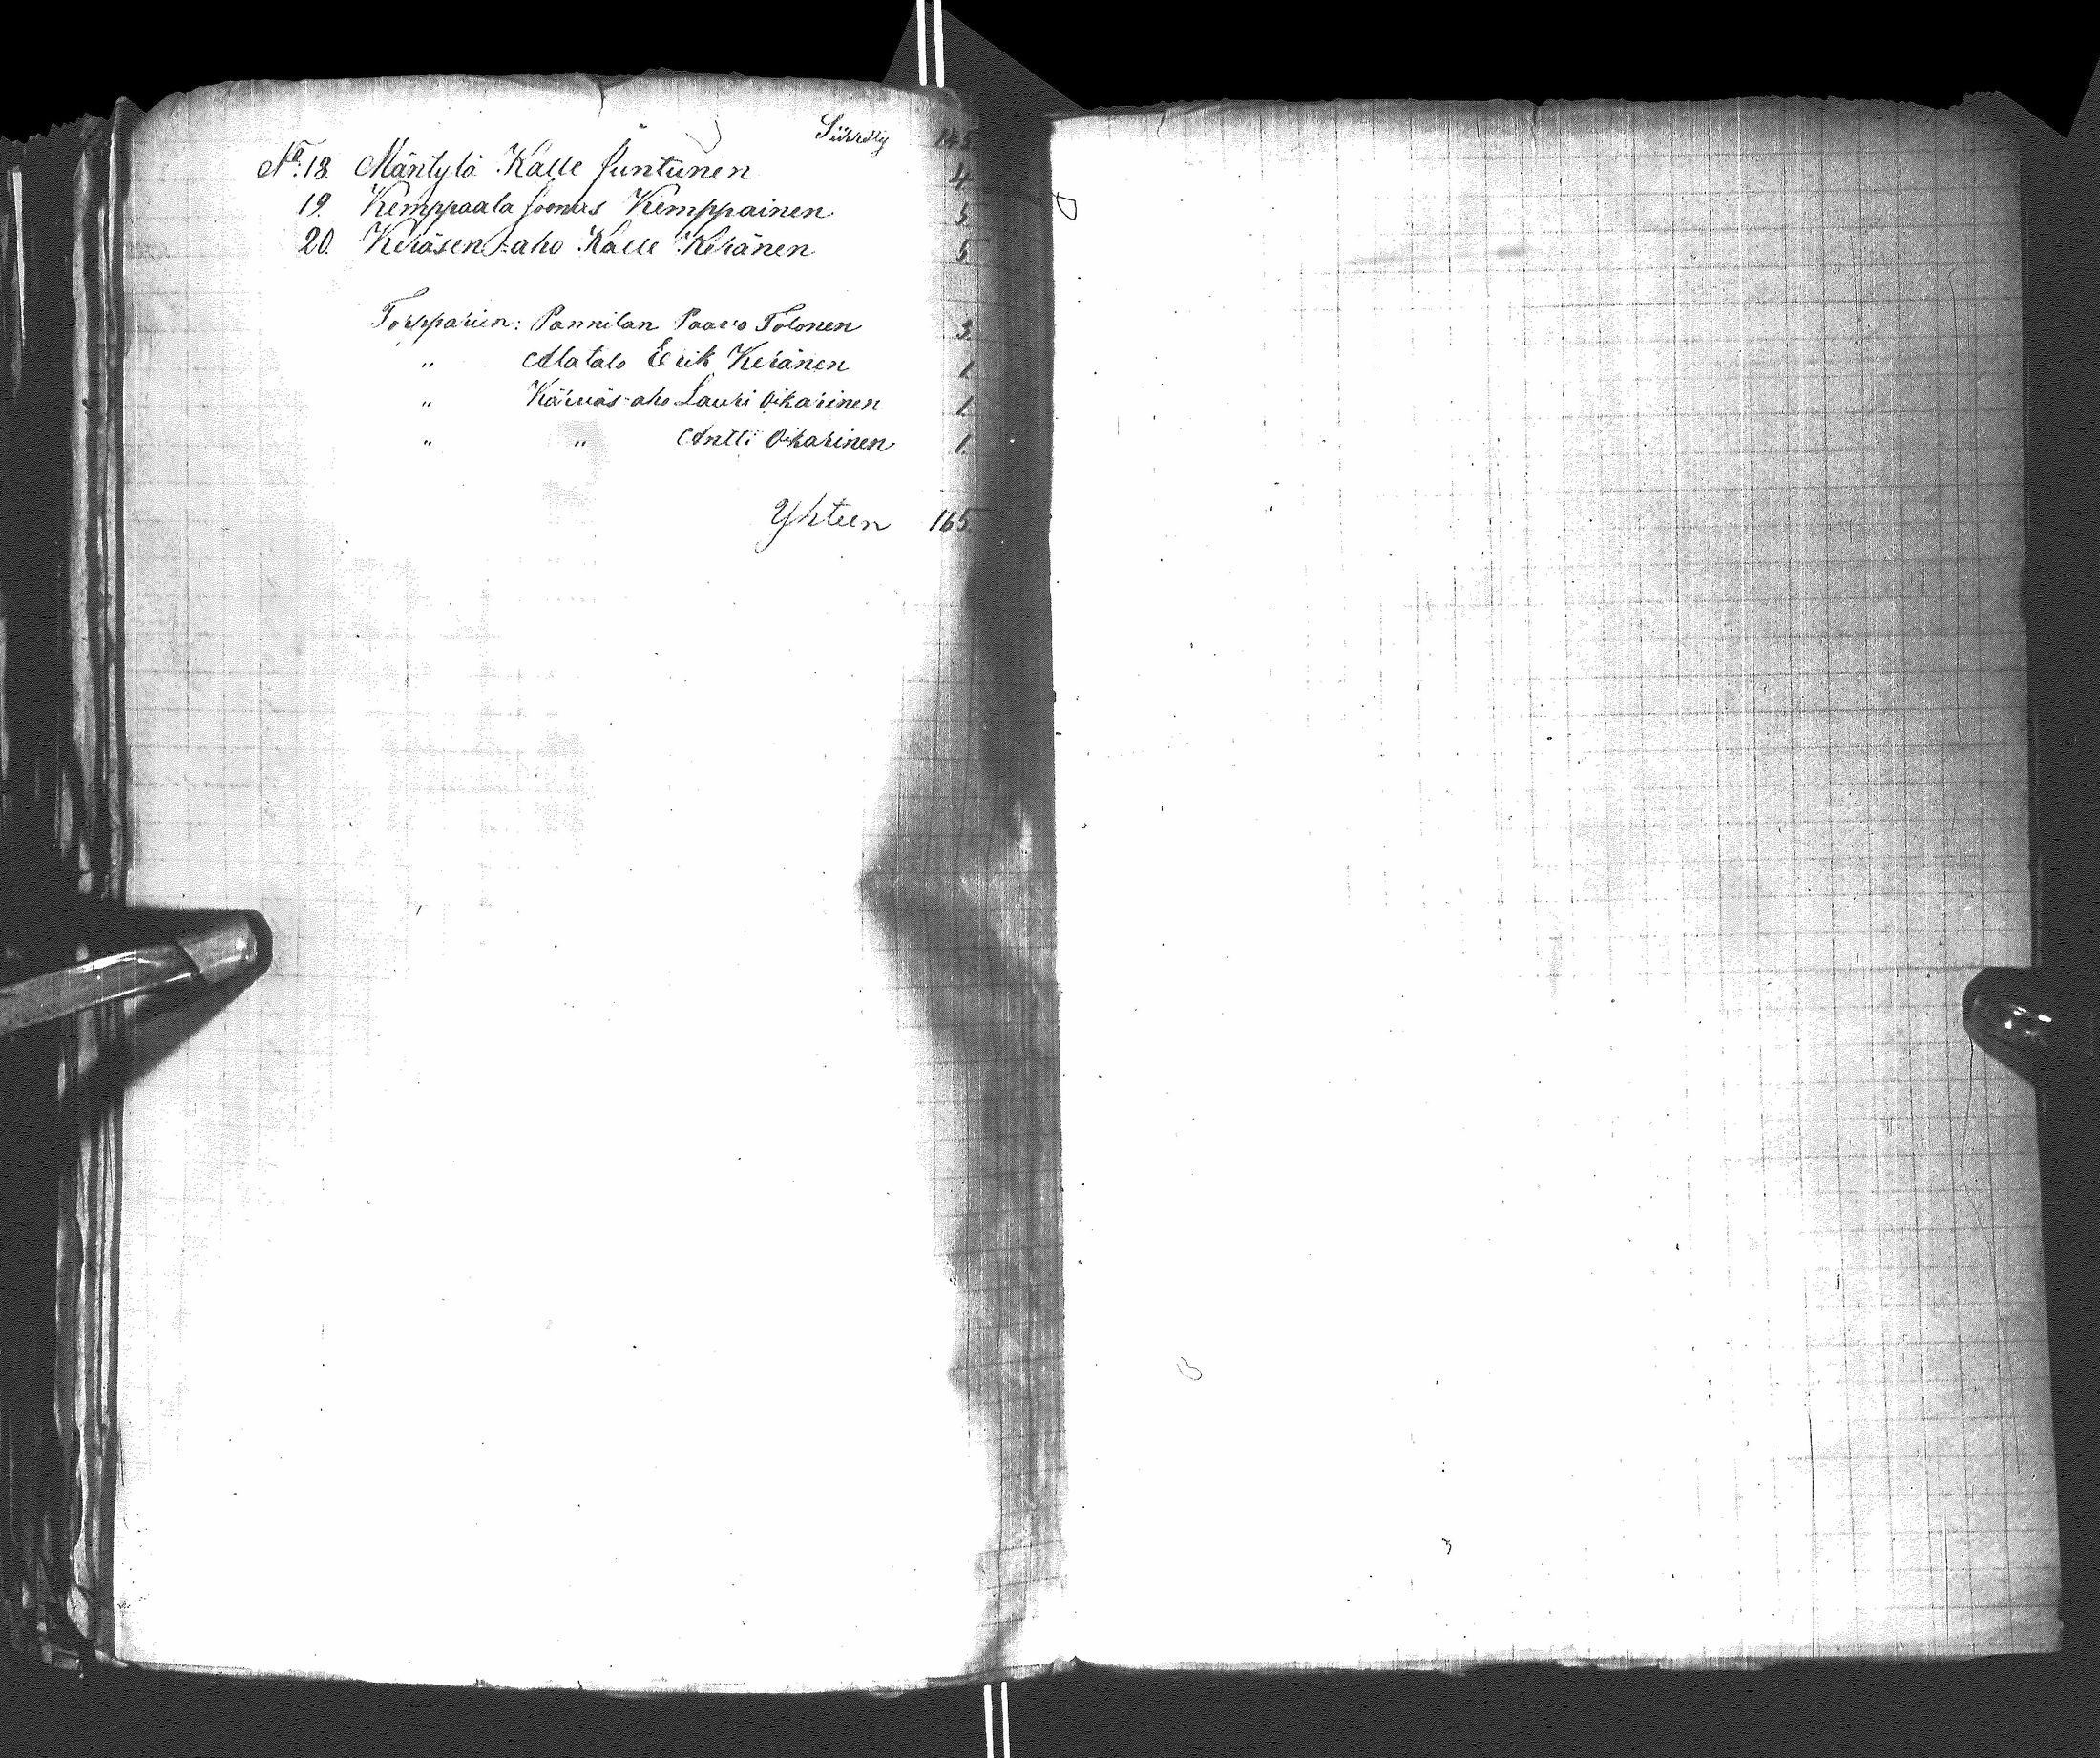 Siirretty 145
No. 18. Mäntylä Kalle Juntunen 4
19. Kemppaala Joonas Kemppainen 5
20. Keräsen-aho Kalle Keränen 5
Torpparien: Pannilan Paavo Tolonen 3.
" Alatalo Erik Keränen 1.
" Kärväs-aho Lauri Oikarinen 1.
" " Antti Oikarinen 1.
Yhteen 165.